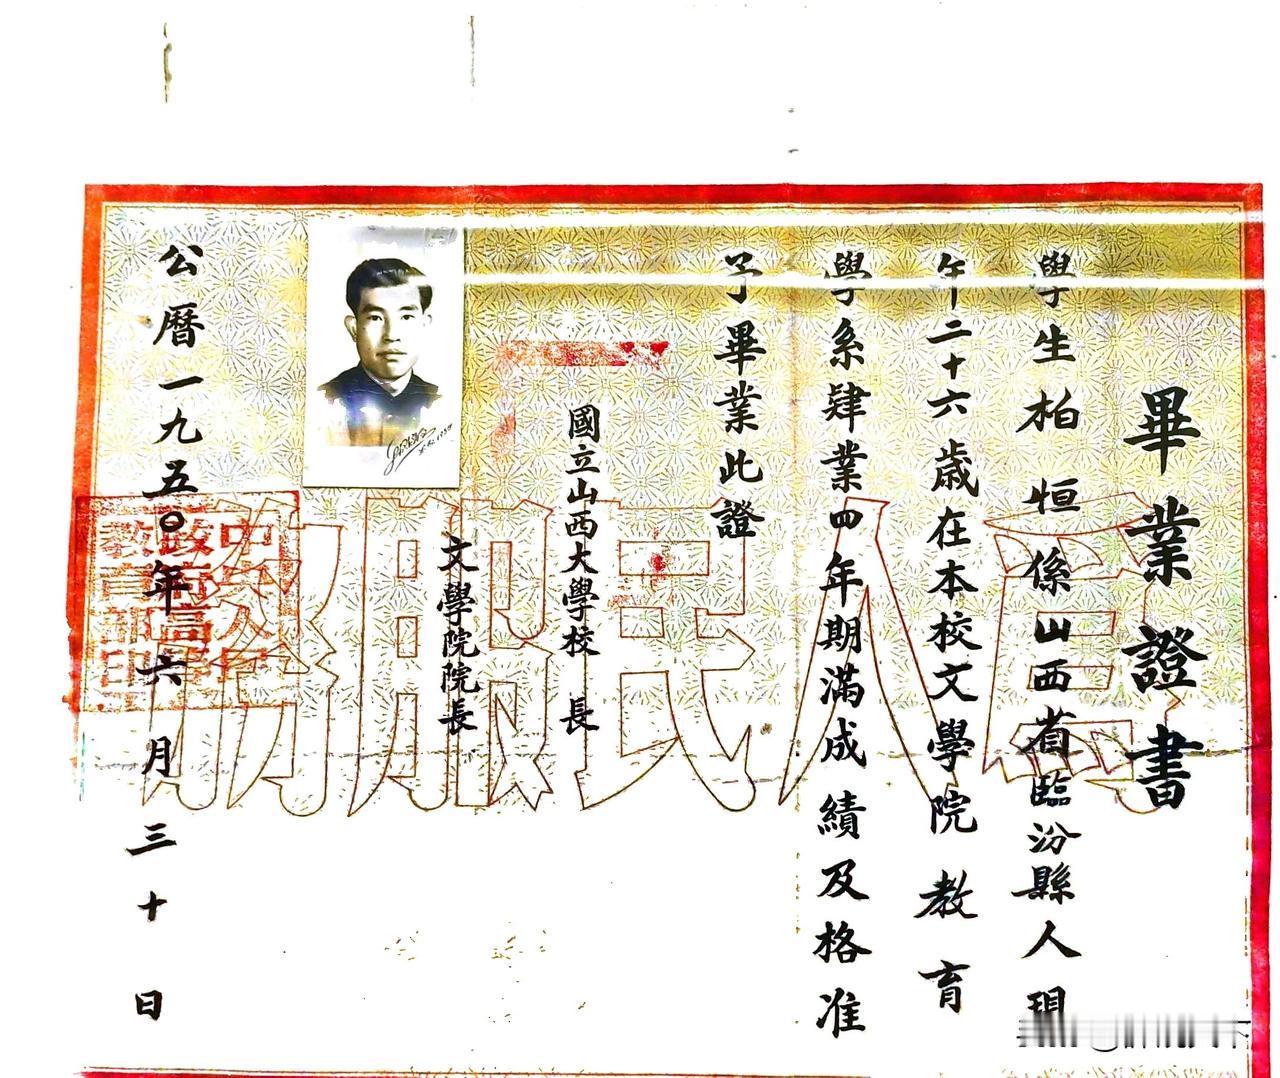 畢業證書
學生柏恒係山西省臨汾縣人現
年二十六歲在本校文學院教育
學系肄業四年期滿成績及格准
予畢業此證
國立山西大學校 長
文學院院長
公曆一九五〇年六月三十日
為人民服務
中央人民
政府高等
教育部印